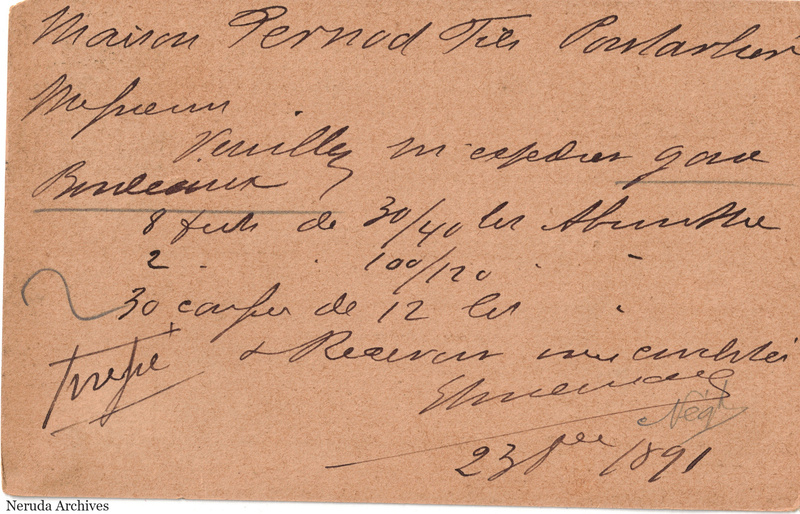 Maison Pernod Fils Pontarlier
Messieurs
Veuillez m'expédier gare
Bordeaux
8 futs de 30/40 lit Absinthe
2 . . 100/120 . "
30 caisses de 12 lit "
& Recevez mes civilités
Négt
23 8bre 1891
Neruda Archives